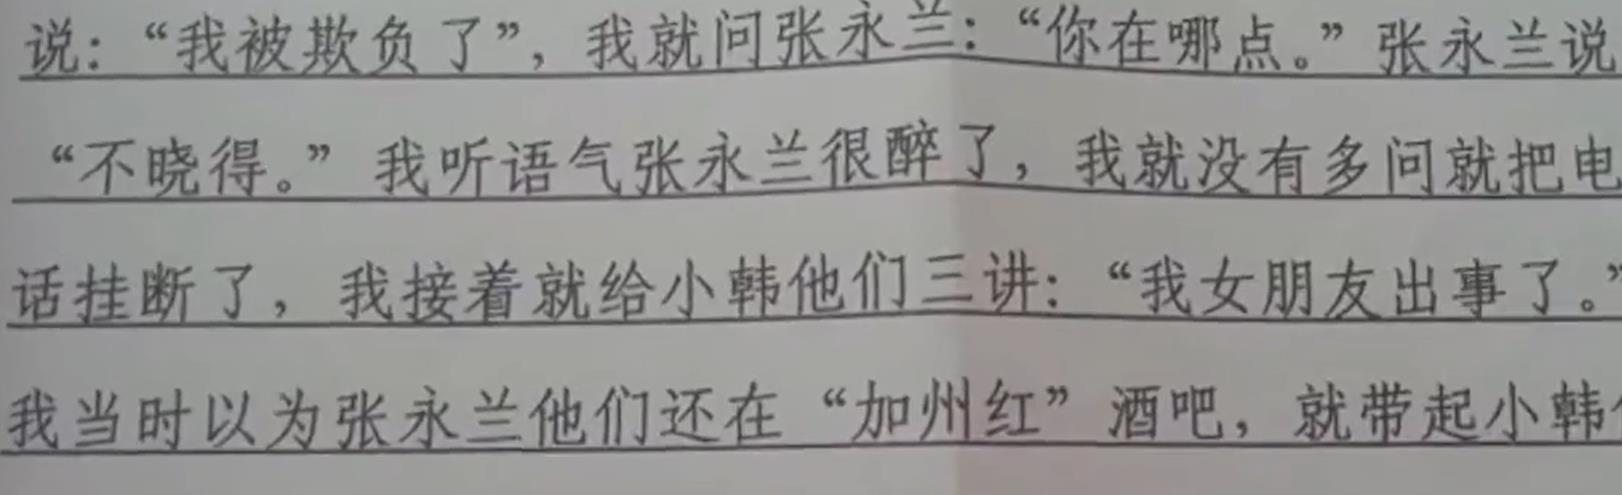 说：“我被欺负了”，我就问张永兰：“你在哪点。”张永兰说
“不晓得。”我听语气张永兰很醉了，我就没有多问就把电
话挂断了，我接着就给小韩他们三讲：“我女朋友出事了。”
我当时以为张永兰他们还在“加州红”酒吧，就带起小韩